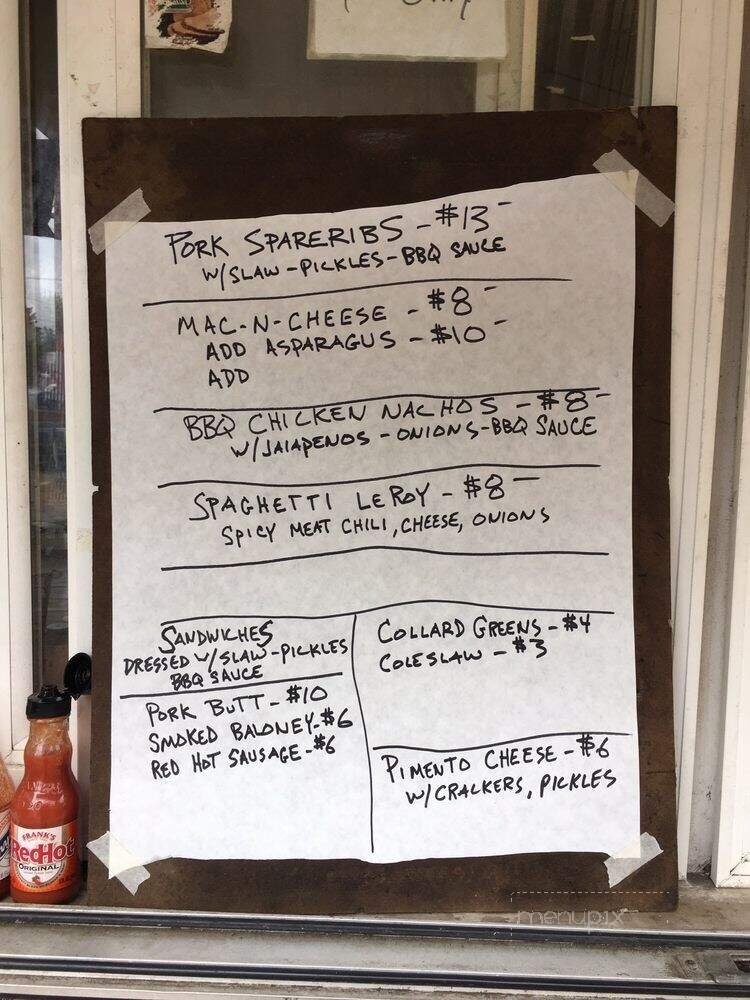 PORK SPARERIBS - #13-
W/SLAW - PICKLES - BBQ SAUCE
MAC-N-CHEESE - #8-
ADD ASPARAGUS - #10-
ADD
BBQ CHICKEN NACHOS - #8-
W/JAlAPENOS - ONIONS - BBQ SAUCE
SPAGHETTI LEROY - #8-
SPICY MEAT CHILI, CHEESE, ONIONS
SANDWICHES
DRESSED W/SLAW-PICKLES
BBQ SAUCE
PORK BUTT - #10
SMOKED BALONEY - #6
RED HOT SAUSAGE - #6
COLLARD GREENS - #4
COLESLAW - #3
PIMENTO CHEESE - #6
W/CRACKERS, PICKLES
FRANK'S
RedHot
ORIGINAL
menupix